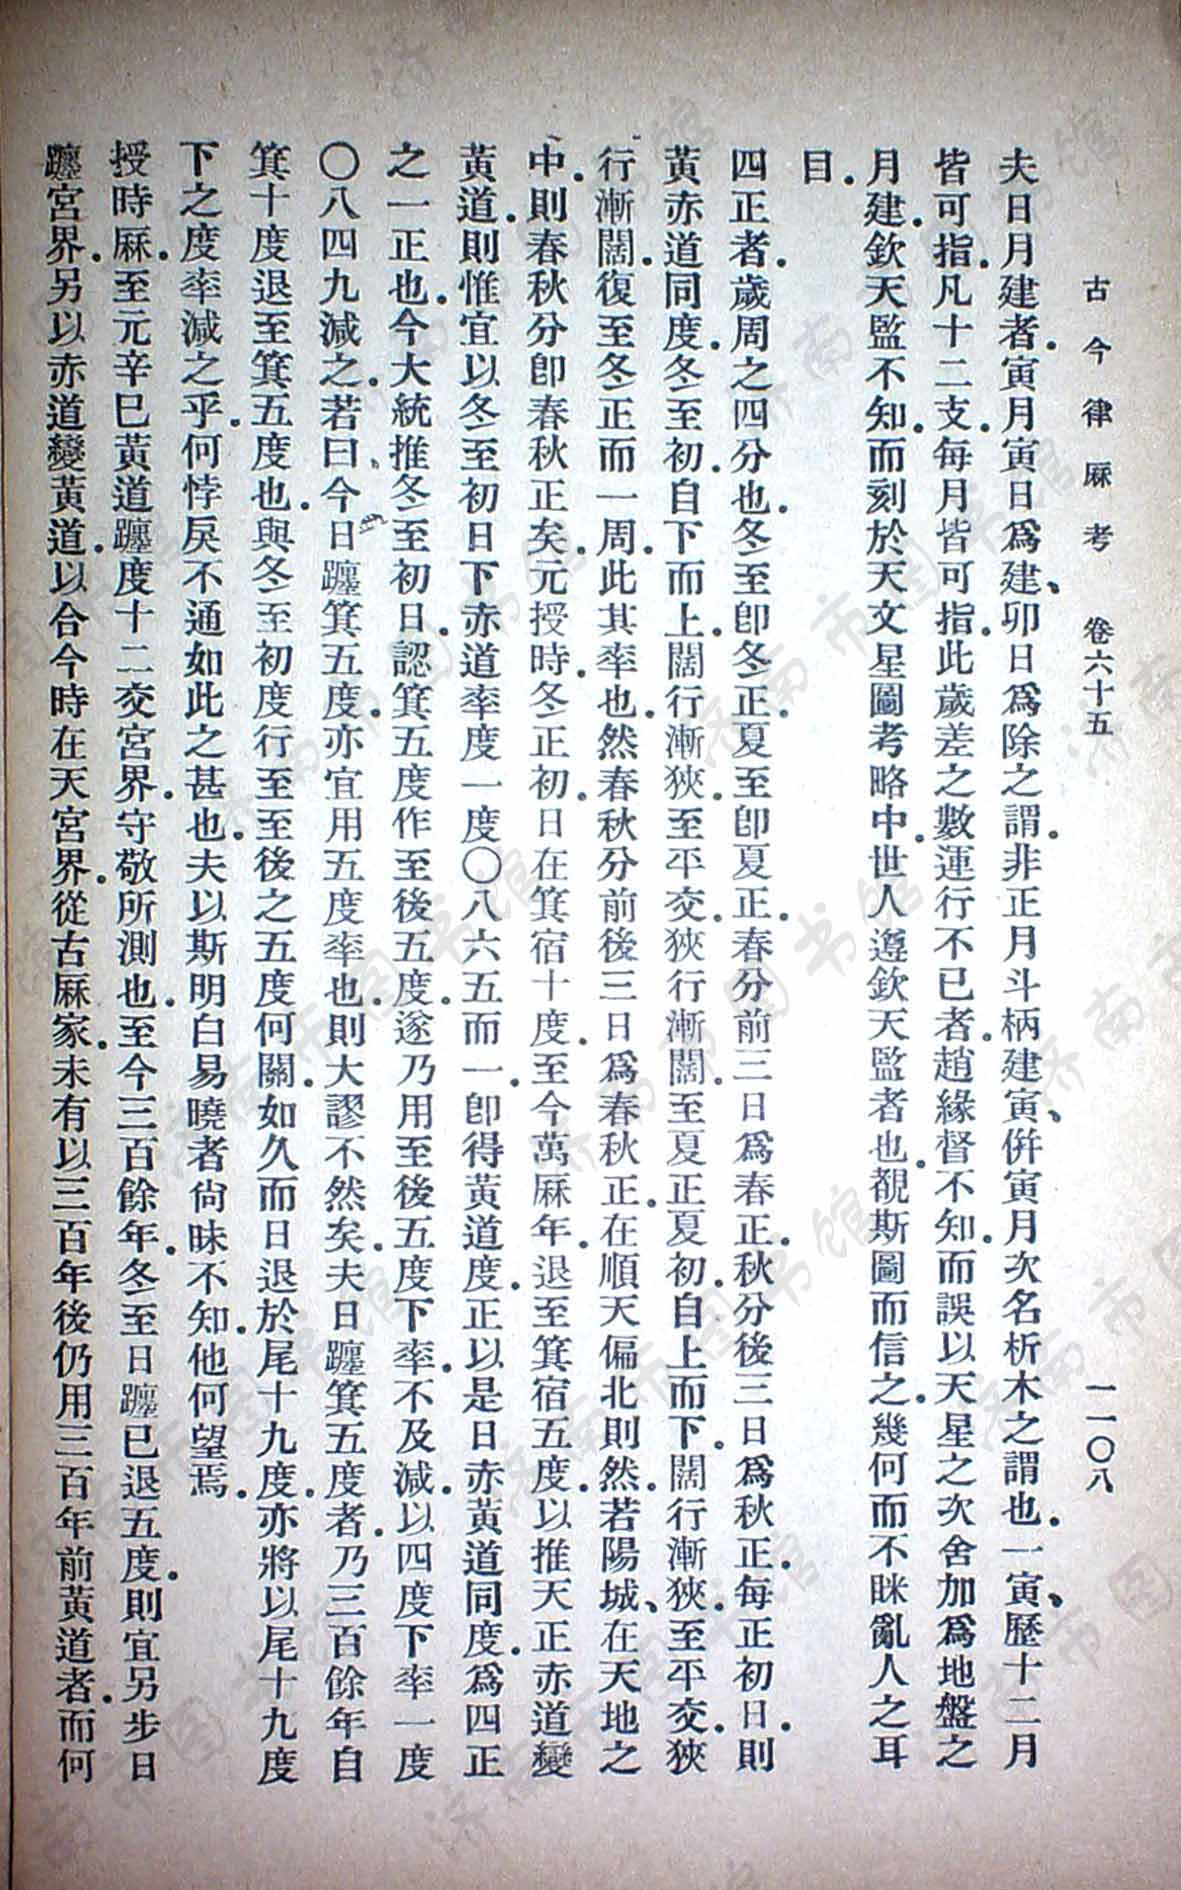 古今律厤考　卷六十五　一一〇八
夫日月建者。寅月寅日爲建、卯日爲除之謂。非正月斗柄建寅、併寅月次名析木之謂也。一寅、歷十二月
皆可指。凡十二支。每月皆可指。此歲差之數。運行不已者。趙緣督不知。而誤以天星之次舍。加爲地盤之
月建。欽天監不知。而刻於天文星圖考略中。世人遵欽天監者也。覩斯圖而信之。幾何而不眯亂人之耳
目。
四正者。歲周之四分也。冬至卽冬正。夏至卽夏正。春分前三日爲春正。秋分後三日爲秋正。每正初日。則
黃赤道同度。冬至初。自下而上。闊行漸狹。至平交。狹行漸闊。至夏正夏初。自上而下。闊行漸狹。至平交。狹
行漸闊。復至冬正而一周。此其率也。然春秋分前後三日爲春秋正。在順天偏北則然。若陽城、在天地之
中。則春秋分卽春秋正矣。元授時。冬正初。日在箕宿十度。至今萬厤年。退至箕宿五度。以推天正赤道變
黃道。則惟宜以冬至初日下赤道率度一度〇八六五而一。卽得黃道度。正以是日赤黃道同度。爲四正
之一正也。今大統推冬至初日。認箕五度作至後五度。遂乃用至後五度下率。不及減。以四度下率一度
〇八四九減之。若曰、今日躔箕五度。亦宜用五度率也。則大謬不然矣。夫日躔箕五度者。乃三百餘年自
箕十度退至箕五度也。與冬至初度行至至後之五度何關。如久而日退於尾十九度。亦將以尾十九度
下之度率減之乎。何悖戾不通如此之甚也。夫以斯明白易曉者尙昧不知。他何望焉。
授時厤。至元辛巳黃道躔度十二交宮界。守敬所測也。至今三百餘年。冬至日躔已退五度。則宜另步日
躔宮界。另以赤道變黃道。以合今時在天宮界。從古厤家。未有以三百年後仍用三百年前黃道者。而何